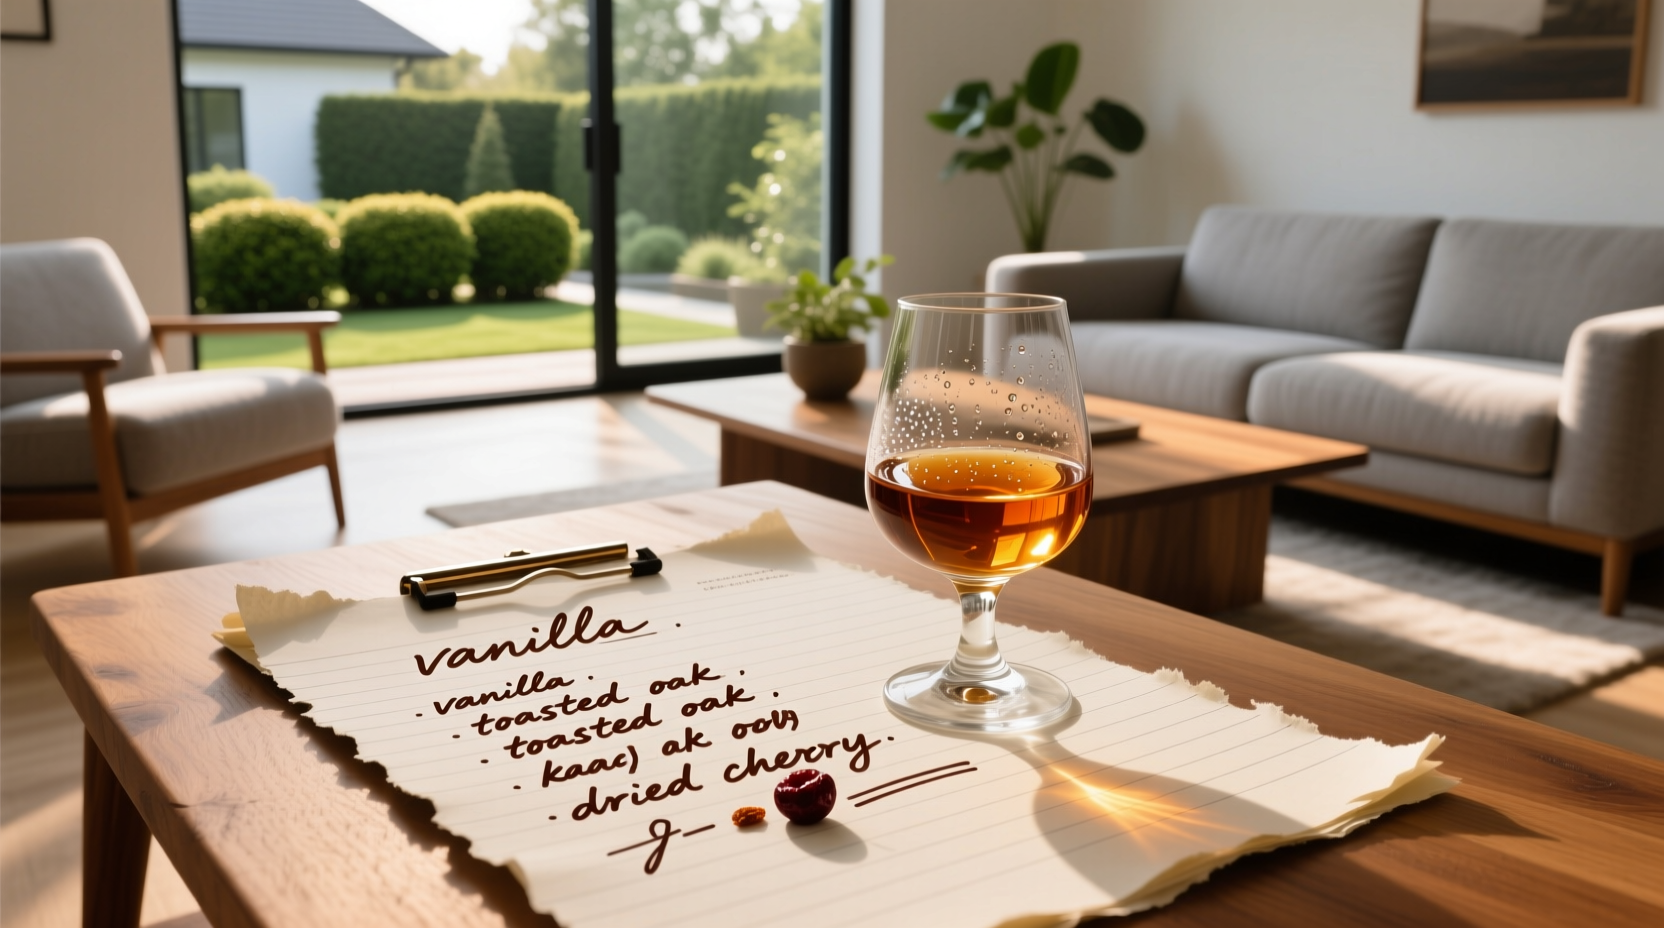 vanilla .
. vanilla .
. toasted oak .
. toasted oak .
. dried cherry .